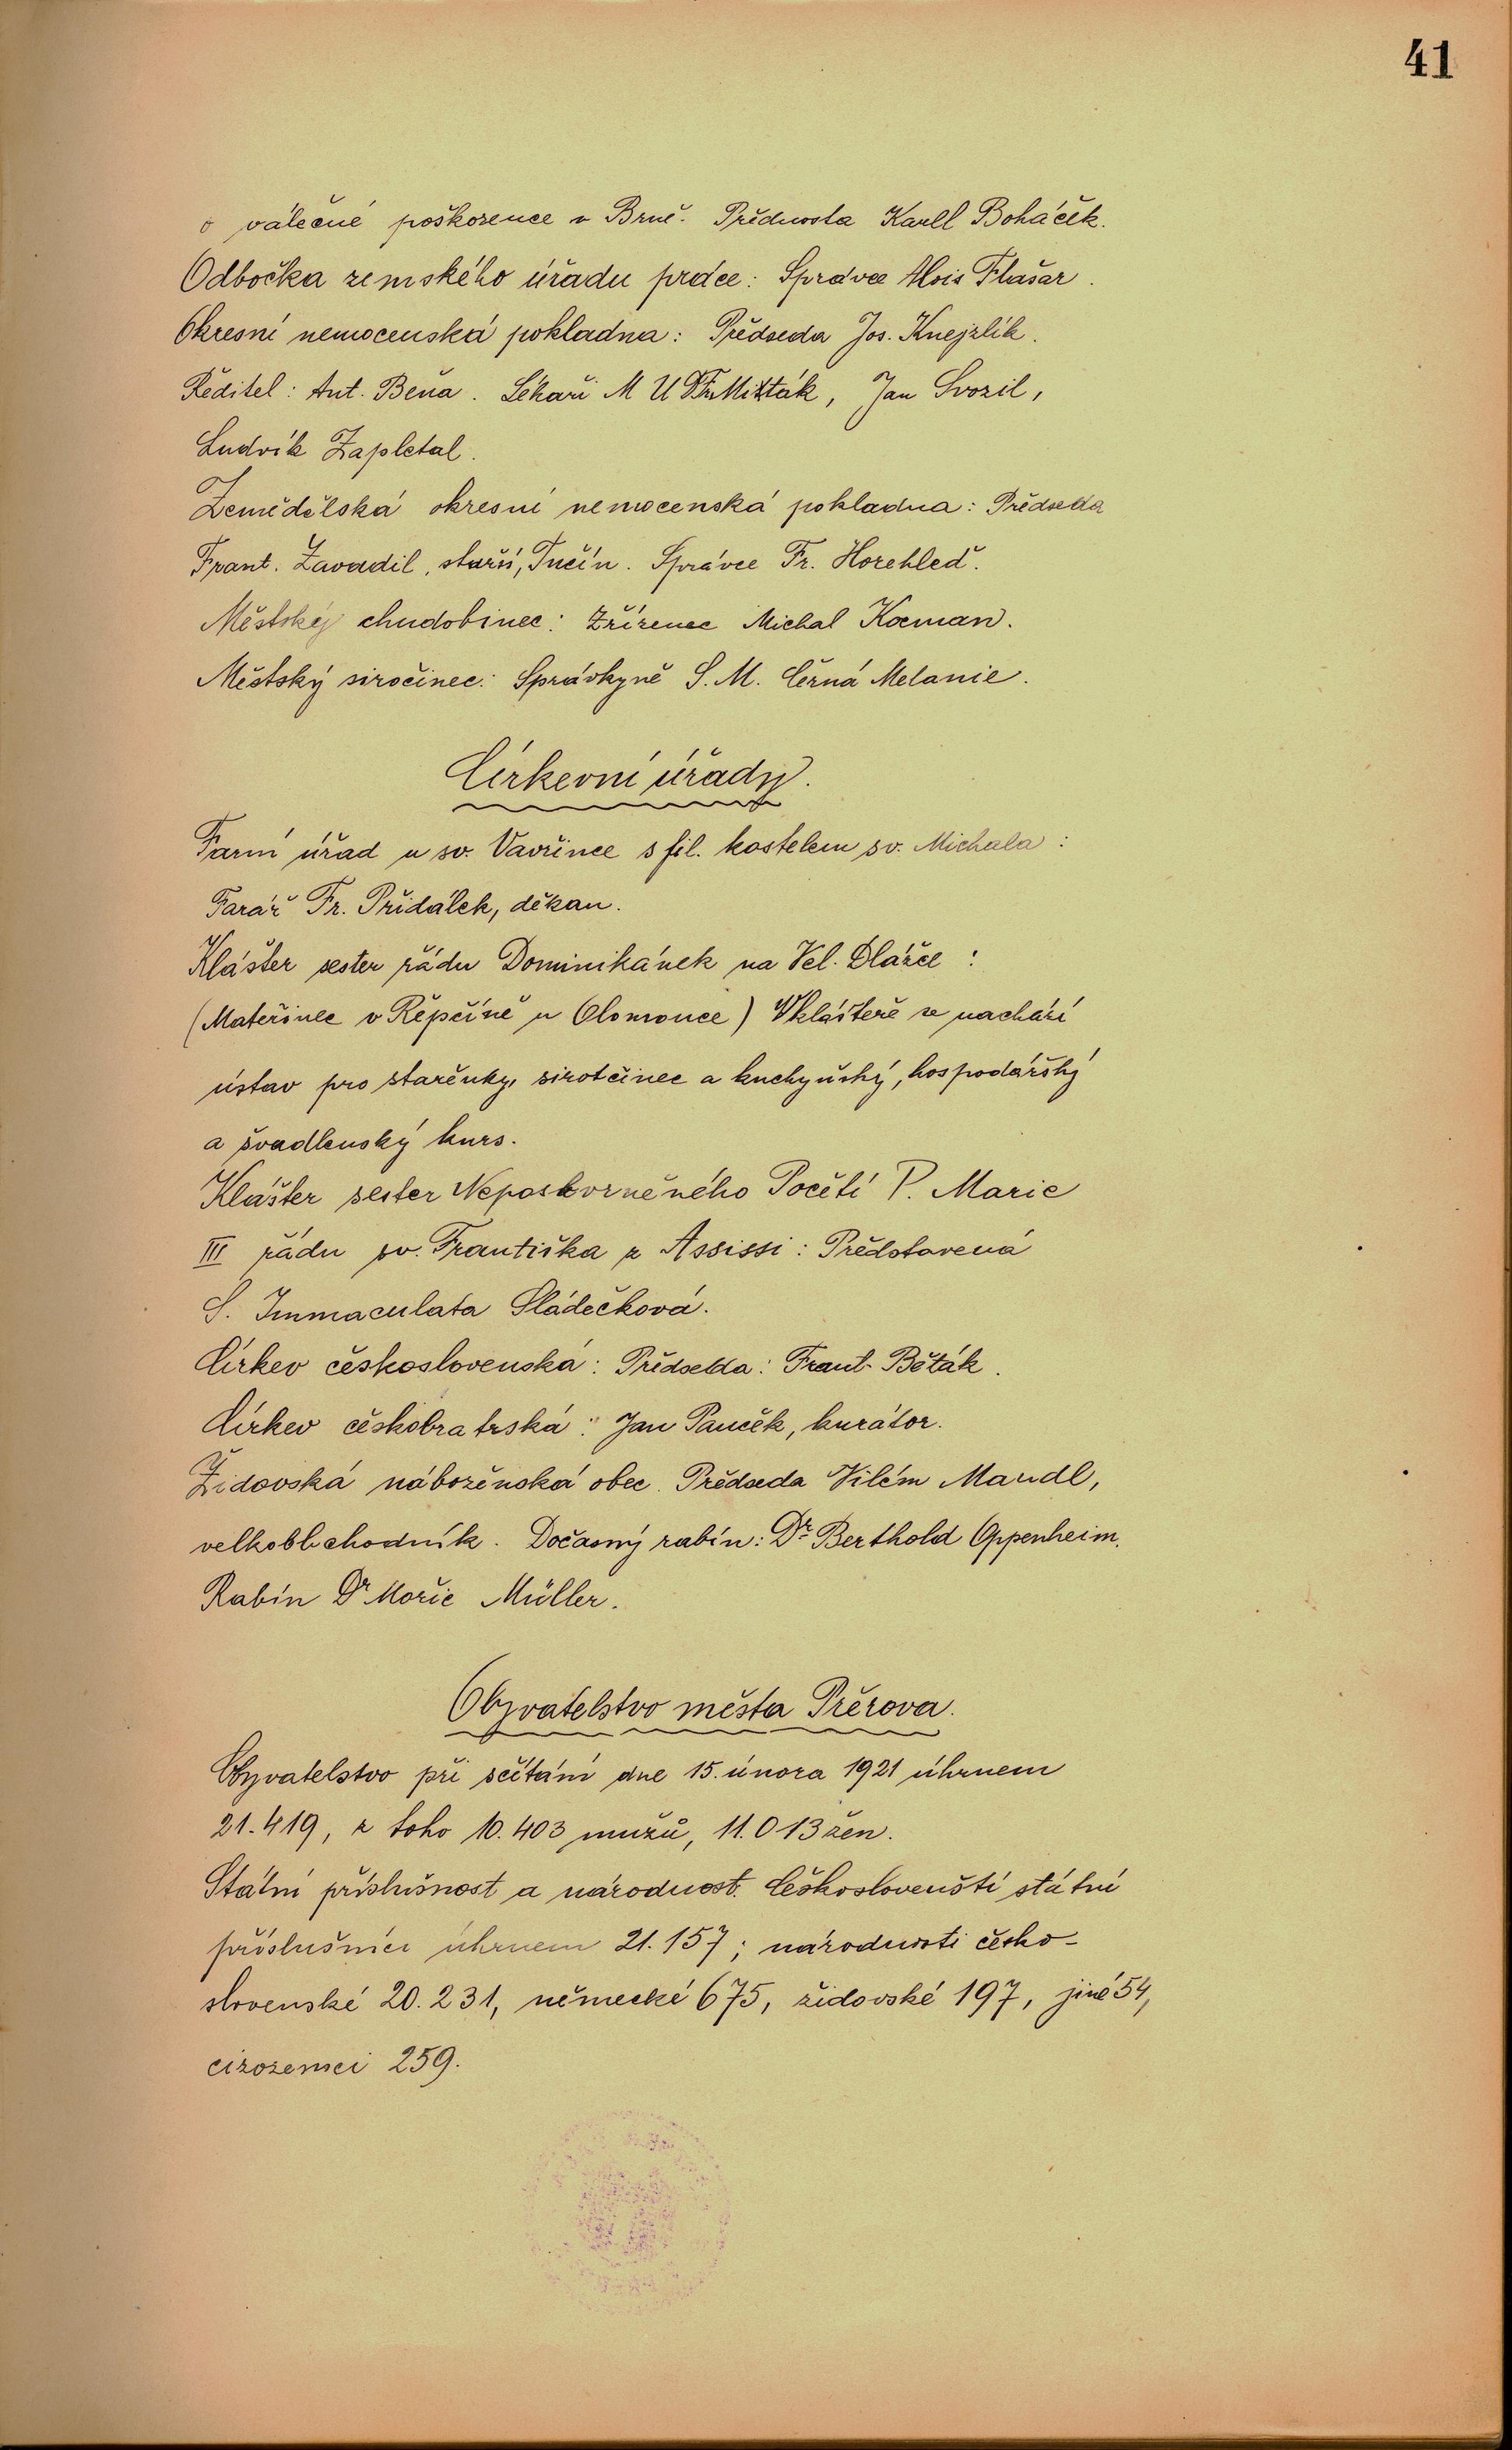 41
o válečné poškozence v Brně. Přednosta Karll Boháček.
Odbočka zemského úřadu práce: Správce Alois Flašar.
Okresní nemocenská pokladna: Předseda Jos. Knejzlík.
Ředitel: Ant. Beňa. Lékaři M U Mišták, Jan Svozil,
Ludvík Zapletal.
Zemědělská okresní nemocenská pokladna: Předseda
Frant. Zavadil, starší, Tučín. Správce Fr. Horehleď.
Městský chudobinec: Zřízenec Michal Kocman.
Městský siročinec: Správkyně S. M. Černá Melanie.
Církevní úřady.
Farní úřad u sv. Vavřince s fil. kostelem sv. Michala:
Farář Fr. Přidálek, děkan.
Klášter sester řádu Dominikánek na Vel. Dlážce:
(Mateřinec v Řepčíně u Olomouce) V klášteře se nachází
ústav pro stařenky, sirotčinec a kuchyňský, hospodářský
a švadlenský kurs.
Klášter sester Neposkvrněného Početí P. Marie
III řádu sv. Františka z Assissi: Představená
S. Immaculata Sládečková.
Církev československá: Předseda: Frant. Běták.
Církev českobratrská: Jan Paucěk, kurátor.
Židovská náboženská obec. Předseda Vilém Mandl,
velkobbchodník. Dočasný rabín: Dr Berthold Oppenheim.
Rabín Dr Mořic Müller.
Obyvatelstvo města Přerova.
Obyvatelstvo při sčítání dne 15. února 1921 úhrnem
21.419, z toho 10.403 mužů, 11.013 žen.
Státní příslušnost a národnost. Českoslovenští státní
příslušníci úhrnem 21.157; národnosti česko-
slovenské 20.231, německé 675, židovské 197, jiné 54,
cizozemci 259.